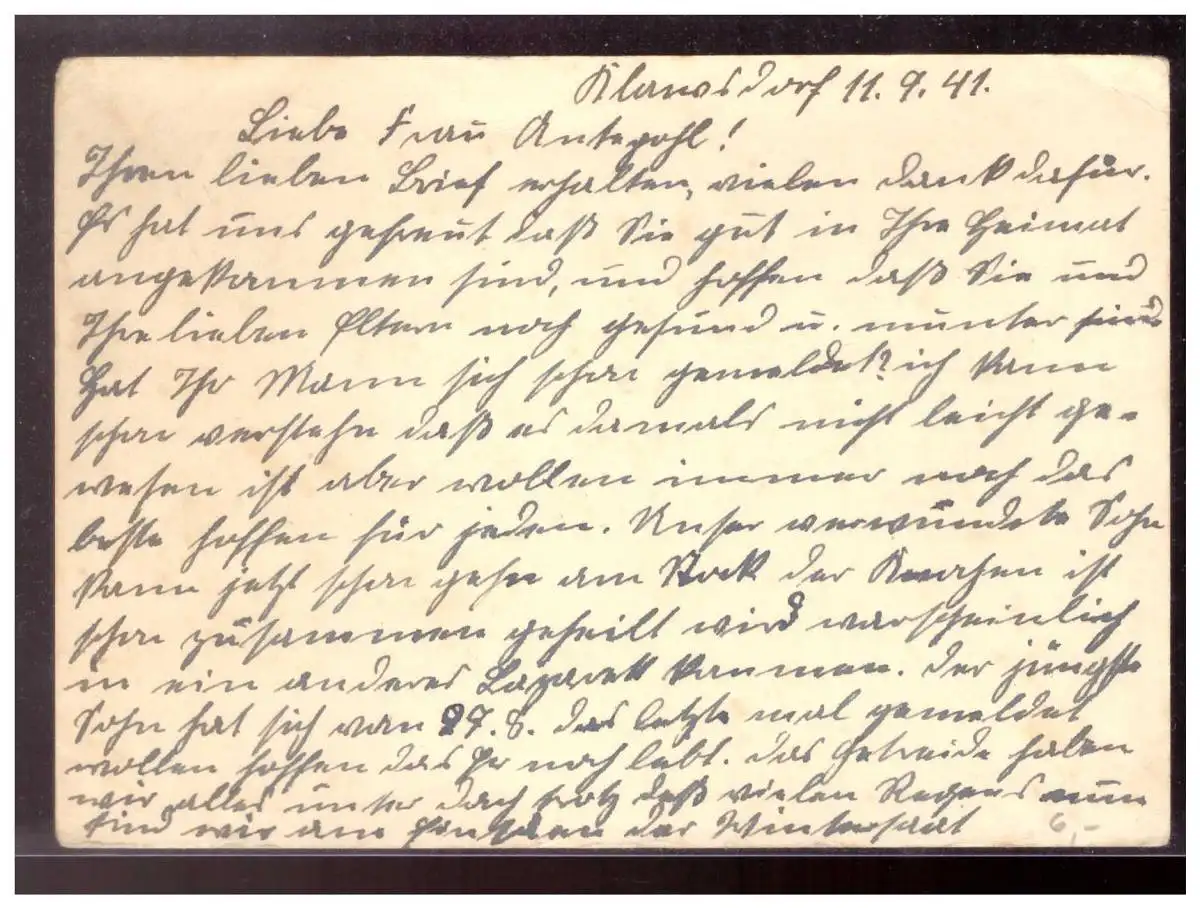 Klawsdorf 11. 9. 41.
Liebe Frau Antepohl!
Ihren lieben Brief erhalten, vielen dank dafür.
Es hat uns gefreut daß Sie gut in Ihre Heimat
angekammen sind, und hoffen daß Sie und
Ihre lieben Eltern noch gesund u. munter sind
Hat Ihr Mann sich schon gemeldet? ich kann
schon verstehn daß es damals nicht leicht ge-
wesen ist aber wollen immer noch das
beste hoffen für jeden. Unser verwundete Sohn
kann jetzt schon gehn am Stock der Knochen ist
schon zusammen geheilt wird warscheinlich
in ein anderes Lazarett kammen. der jüngste
Sohn hat sich van 27. 8. das letzte mal gemeldet
wollen hoffen das Er noch lebt. das Getreide haben
wir alles unter dach trotz deß vielen Regens nun
sind wir am Einsäen der Wintersaat
6,-